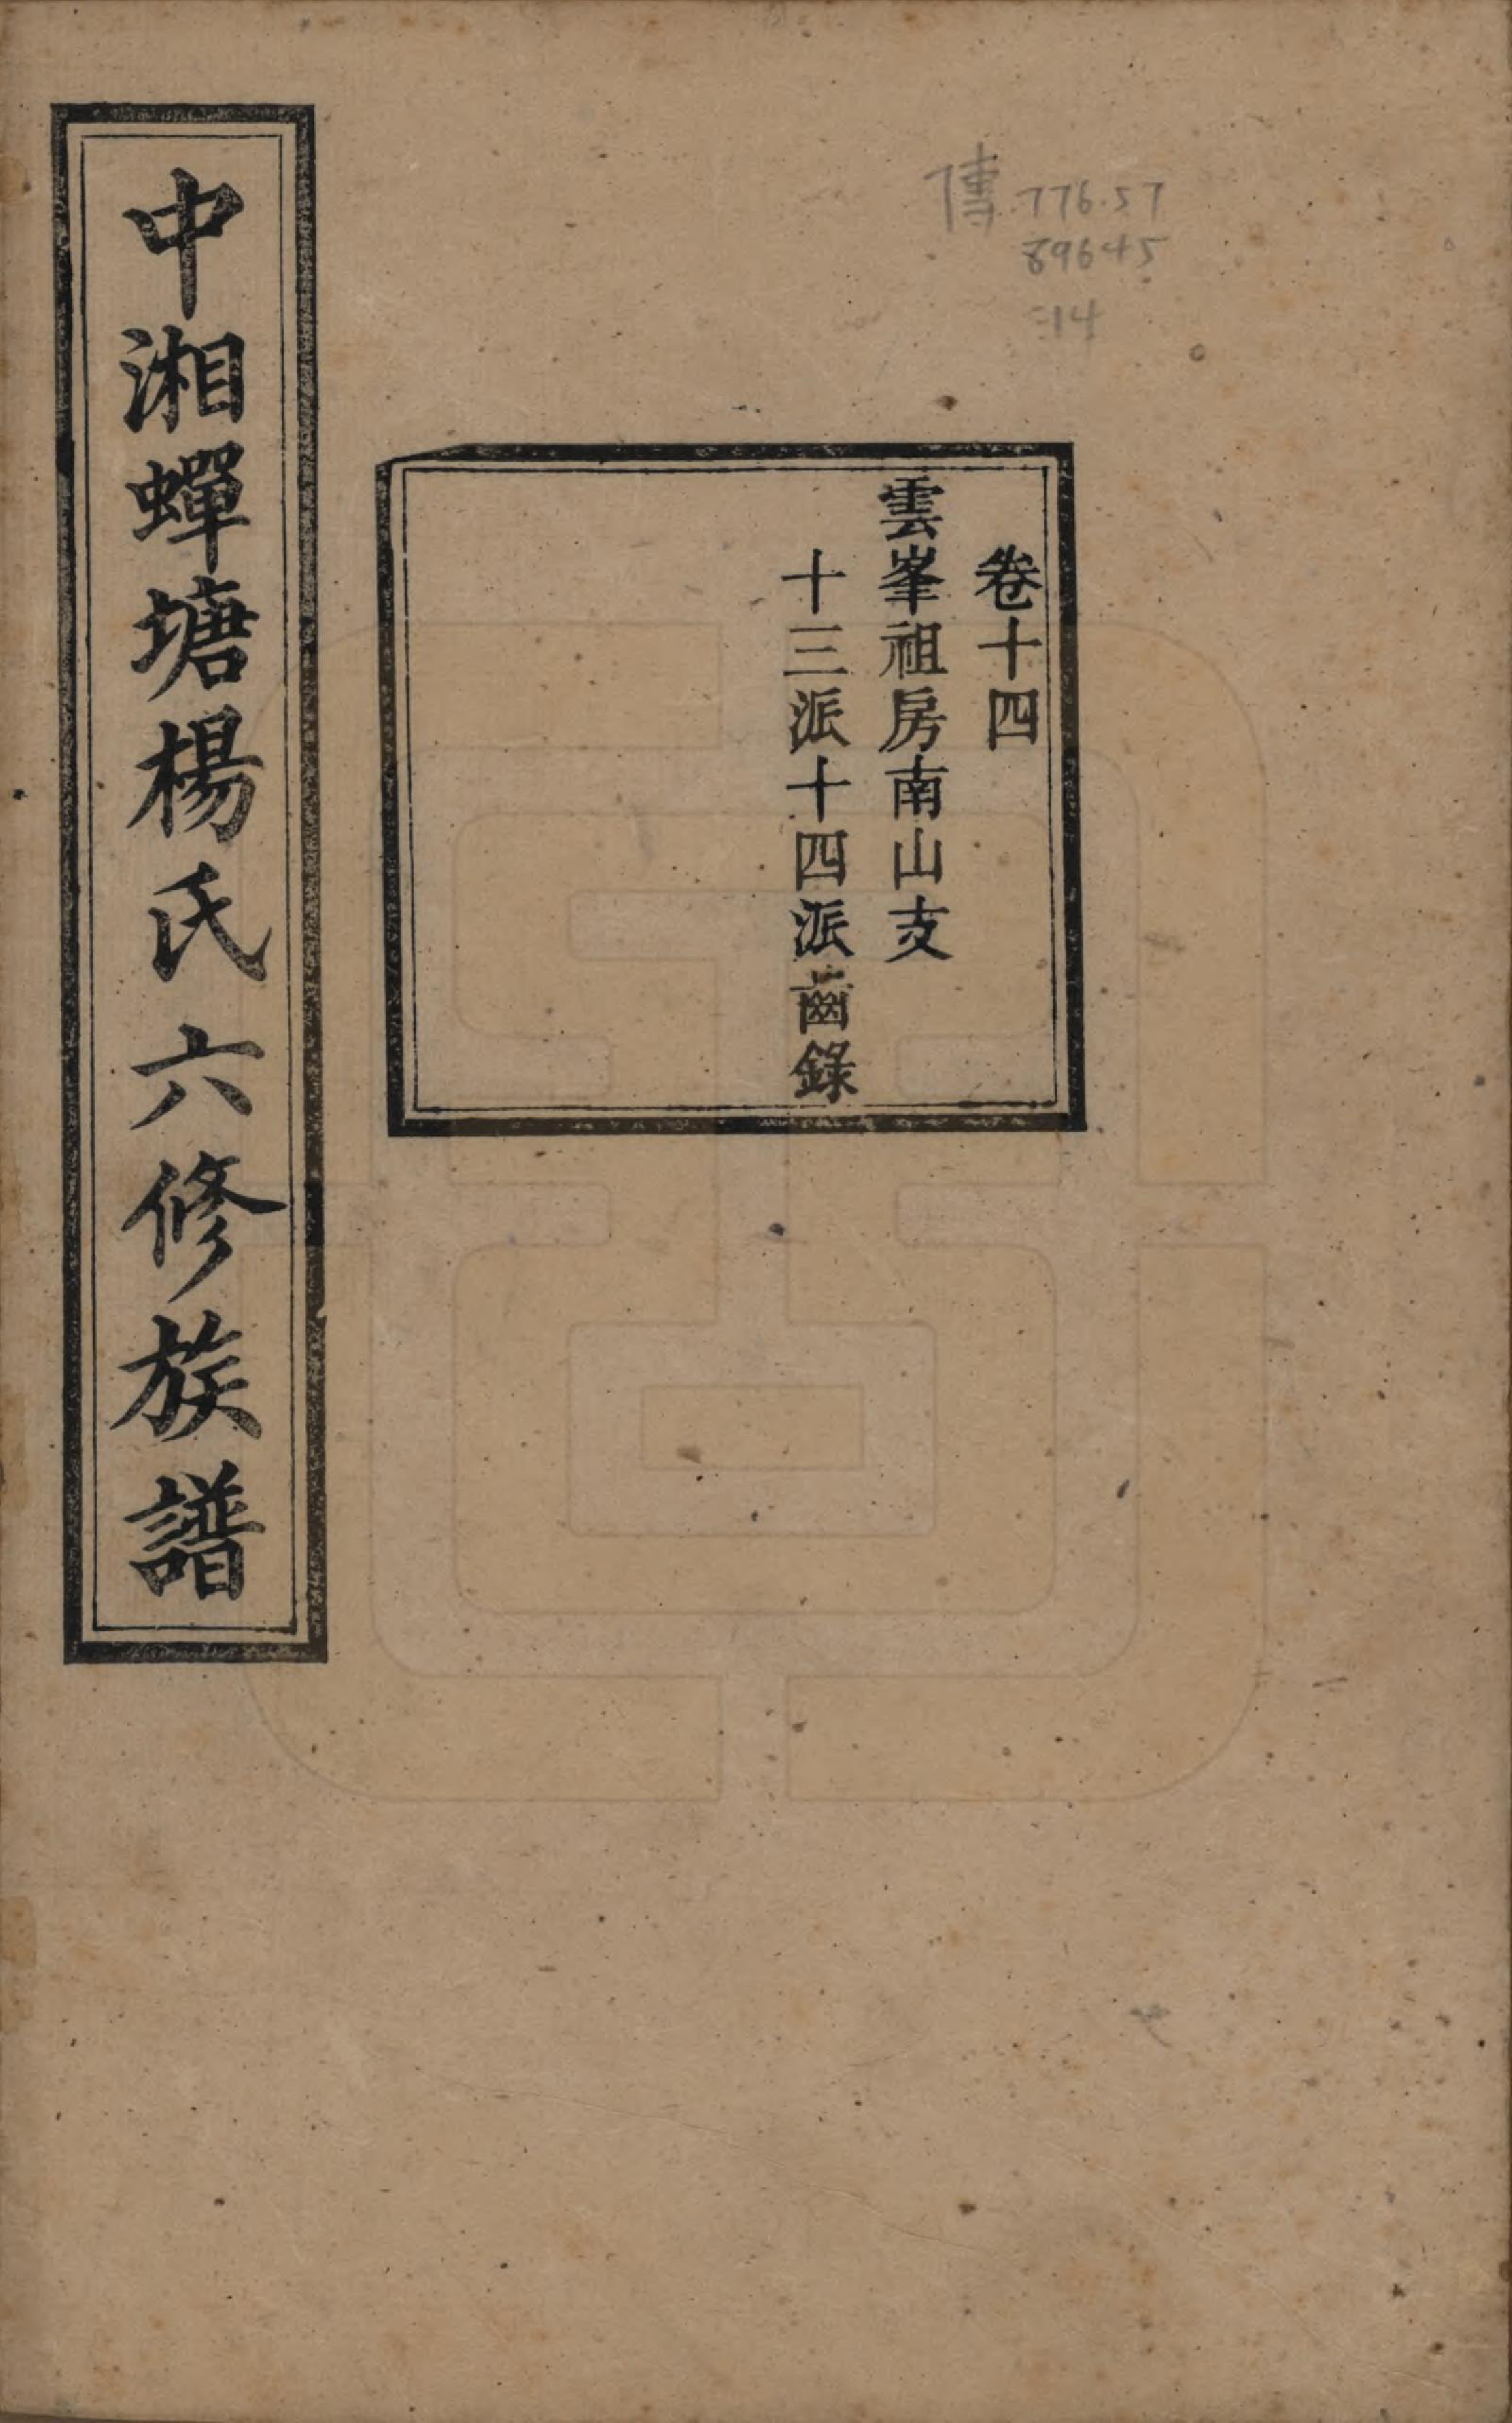 傳 776.57
89645
:14
卷十四
雲峯祖房南山支
十三派十四派齒錄
中湘蟬塘楊氏六修族譜